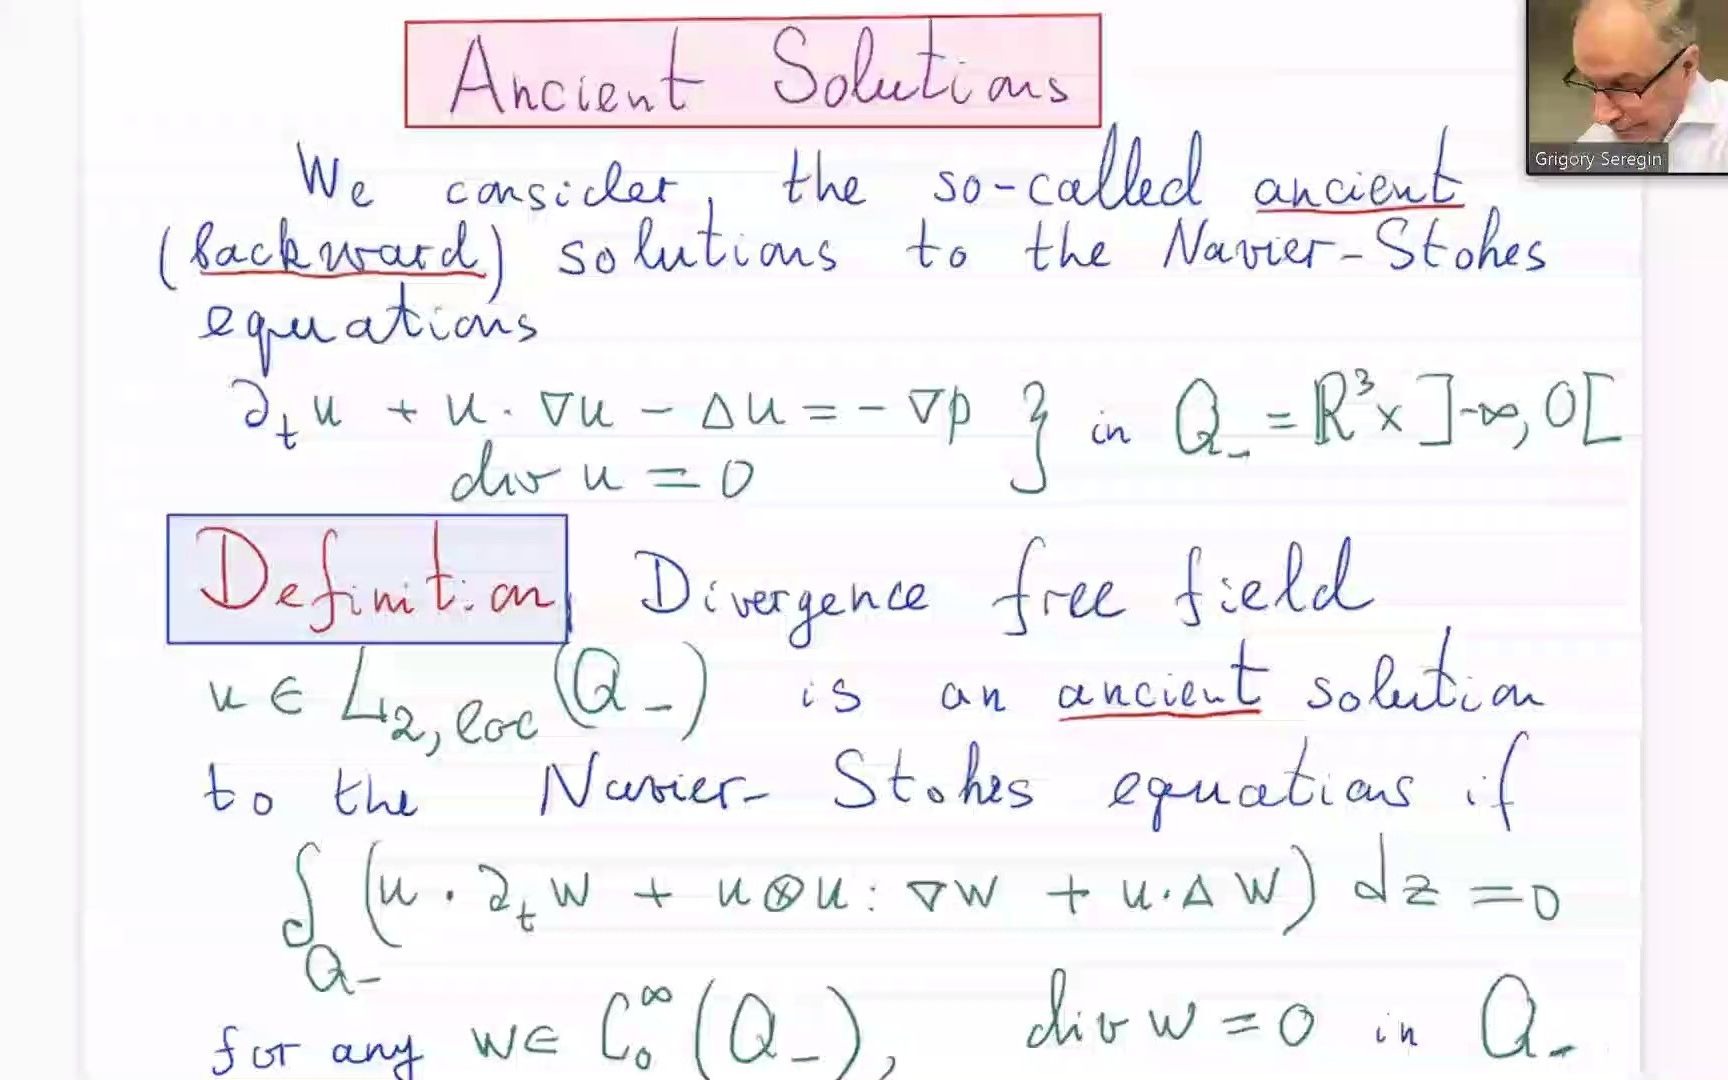 Ancient Solutions
Grigory Seregin
We consider, the so-called ancient
(backward) solutions to the Navier-Stokes
equations
∂_t u + u · ∇u − Δu = − ∇p } in Q_- = ℝ³ × ]-∞, 0[
div u = 0
Definition Divergence free field
u ∈ L_{2,loc}(Q_-) is an ancient solution
to the Navier-Stokes equations if
∫_{Q_-} (u · ∂_t w + u⊗u : ∇w + u·Δw) dz = 0
for any w ∈ C_0^∞(Q_-), div w = 0 in Q_-